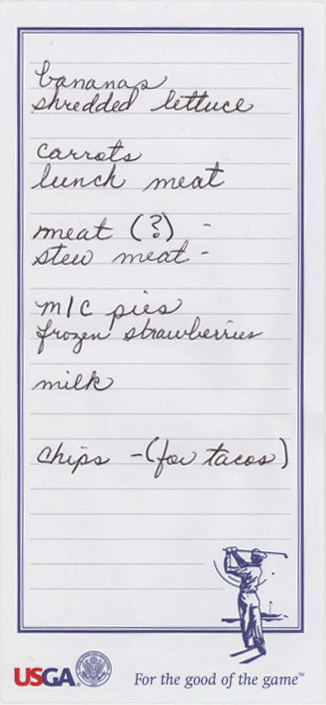 bananas
shredded lettuce
carrots
lunch meat
meat (?) -
stew meat -
m/c pies
frozen strawberries
milk
chips - (for tacos)
USGA®
For the good of the game™